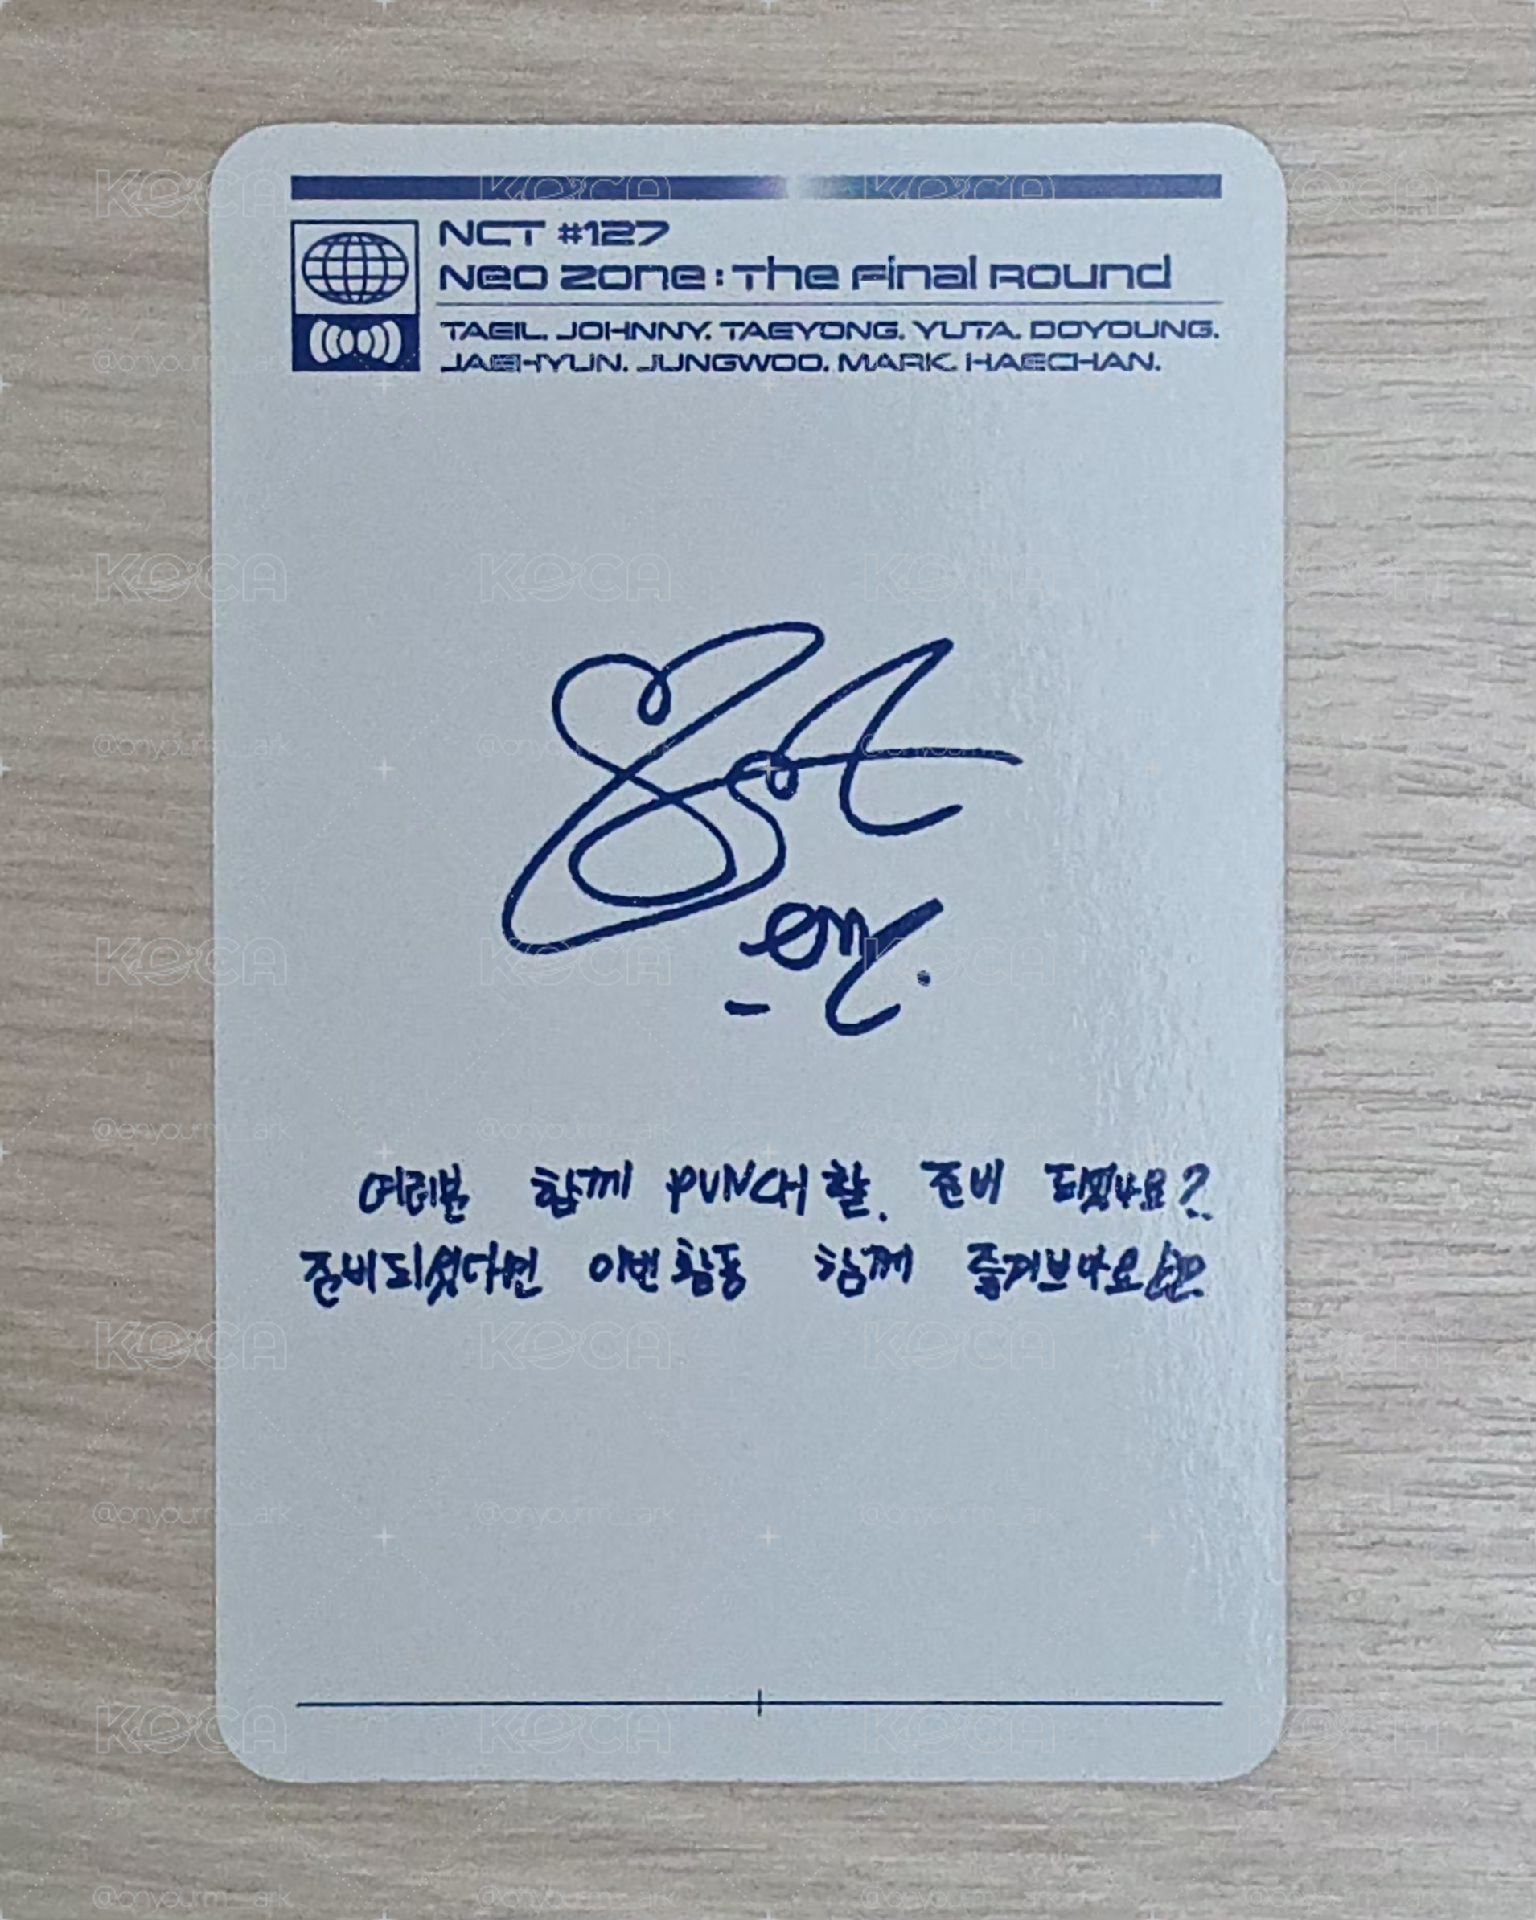 NCT #127
Neo Zone : The Final Round
TAEIL. JOHNNY. TAEYONG. YUTA. DOYOUNG.
JAEHYUN. JUNGWOO. MARK. HAECHAN.
여러분 함께 PUNCH 할 준비 되셨나요?
준비되셨다면 이번 활동 함께 즐겨보아요
KOCA
@onyourm__ark